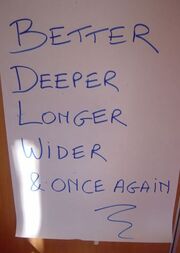 BETTER
DEEPER
LONGER
WIDER
& ONCE AGAIN